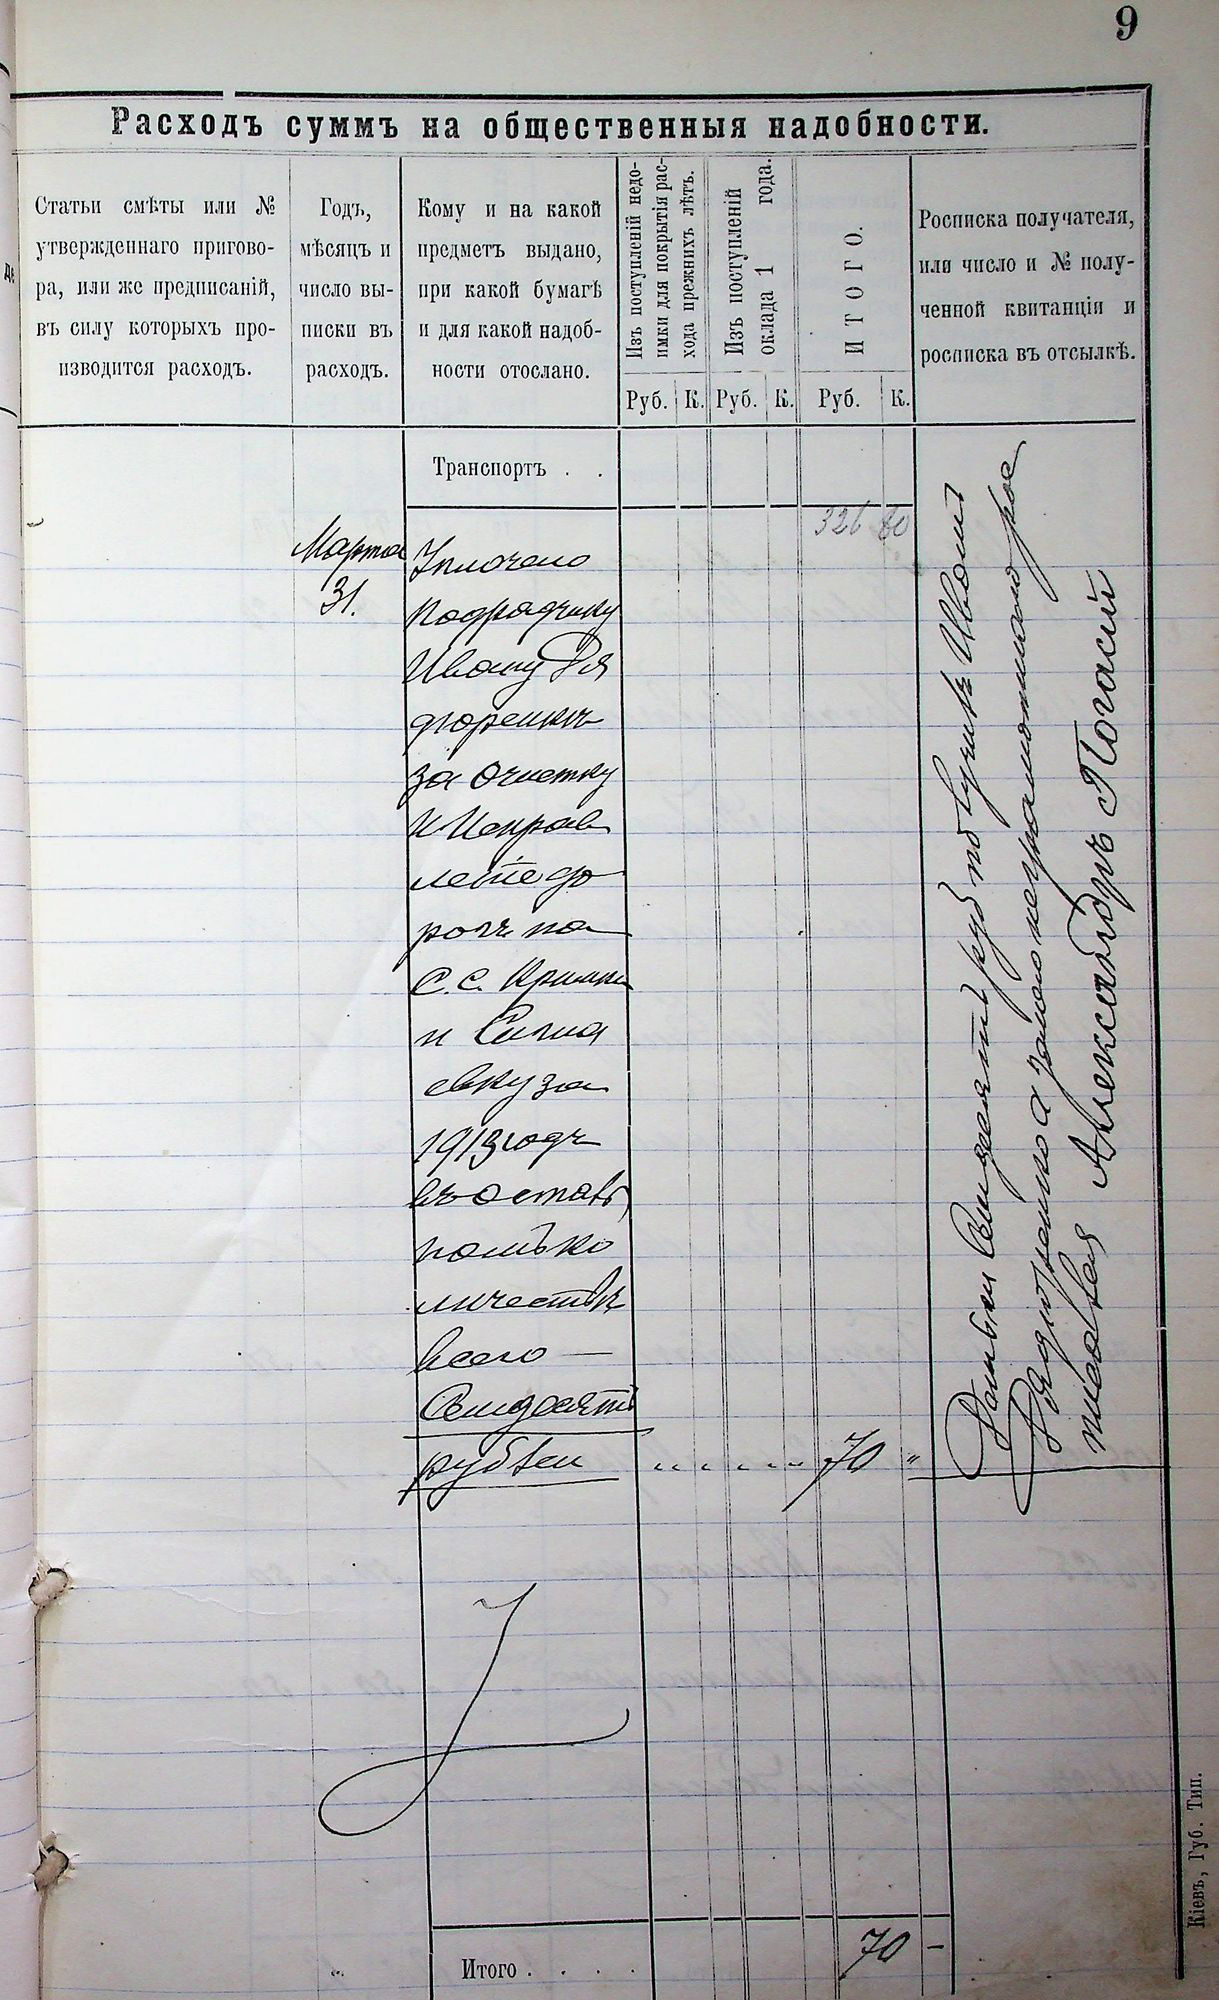 9
Расходъ суммъ на общественныя надобности.
Статьи смѣты или №
утвержденнаго пригово-
ра, или же предписаній,
въ силу которыхъ про-
изводится расходъ.
Годъ,
мѣсяцъ и
число вы-
писки въ
расходъ.
Кому и на какой
предметъ выдано,
при какой бумагѣ
и для какой надоб-
ности отослано.
Изъ поступленій недо-
имки для покрытія рас-
хода прежнихъ лѣтъ.
Изъ поступленій
оклада 1 года.
ИТОГО.
Росписка получателя,
или число и № полу-
ченной квитанціи и
росписка въ отсылкѣ.
Руб. К. Руб. К. Руб. К.
Транспортъ . .
326 80
Марта
31.
Уплочено
подрадчику
Ивану Дя
дюренкѣ
за очистку
и исправ
леніе до
рогъ на
с.с. Кримки
и
евку за
1913 годъ
въ остав
номъ ко
личествѣ
всего —
Семдесятъ
рублей " " " " 70 "
Деньги Семдесятъ руб получилъ Иванъ
а за него неграмотнаго рос
писался Александръ Погасій
Итого . . . . 70 —
Кіевъ, Губ. Тип.